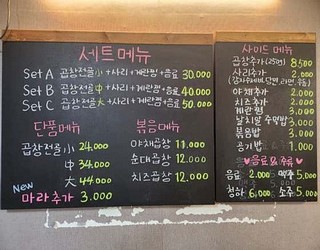 세트메뉴
Set A 곱창전골小+사리+계란찜+음료 30.000
Set B 곱창전골中+사리+계란찜+음료 40.000
Set C 곱창전골大+사리+계란찜+음료 50.000
단품메뉴
곱창전골 小 24.000
中 34.000
大 44.000
New
마라추가 3.000
볶음메뉴
야채곱창 11.000
순대곱창 12.000
치즈곱창 12.000
사이드 메뉴
곱창추가 8500
사리추가 2.000
야채추가 2.000
치즈추가 2.000
계란찜 3.000
날치알 주먹밥 3.000
볶음밥 3.000
공기밥 1.000
♥음료 & 주류♥
음료 2.000 맥주 5.000
청하 6.000 소주 5.000